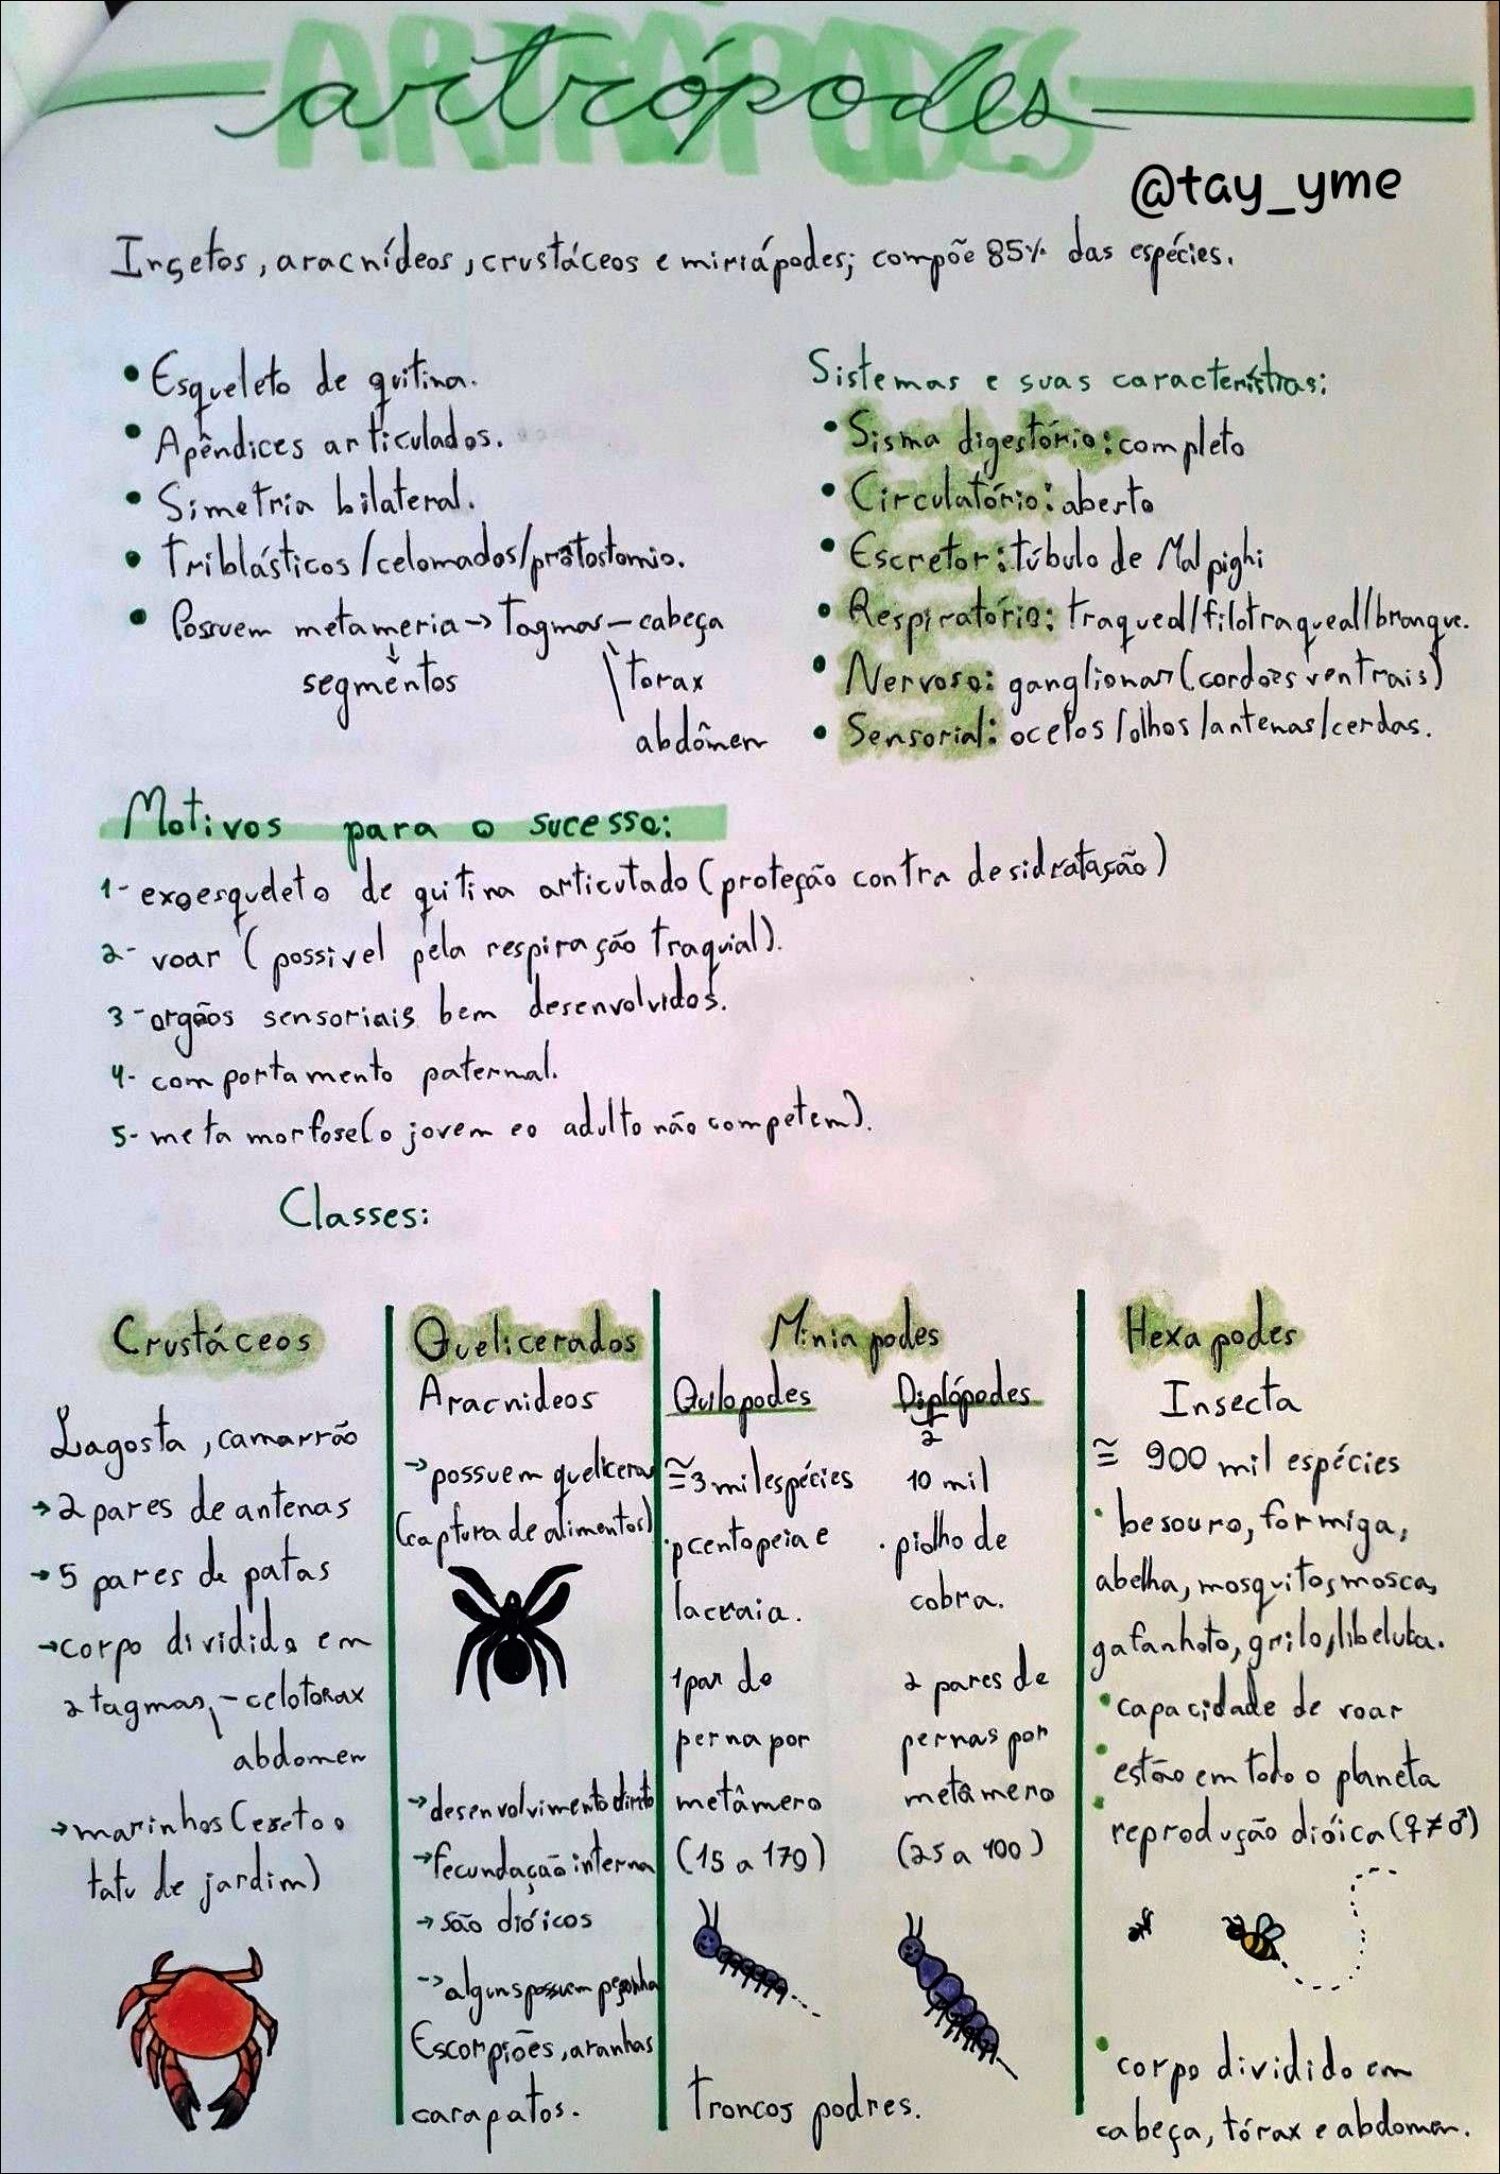 artrópodes
@tay_yme
Insetos, aracnídeos, crustáceos e miriápodes; compõe 85% das espécies.
• Esqueleto de quitina.
• Apêndices articulados.
• Simetria bilateral.
• Triblásticos/celomados/protostomio.
• Possuem metameria → Tagmas – cabeça
segmentos
torax
abdômen
Sistemas e suas características:
• Sisma digestório: completo
• Circulatório: aberto
• Escretor: túbulo de Malpighi
• Respiratório: traqueal/filotraqueal/branque.
• Nervoso: ganglionar (cordões ventrais)
• Sensorial: ocelos/olhos/antenas/cerdas.
Motivos para o sucesso:
1- exoesqueleto de quitina articulado (proteção contra desidratação)
2- voar (possivel pela respiração traquial).
3- orgãos sensoriais bem desenvolvidos.
4- comportamento paternal.
5- metamorfose (o jovem e o adulto não competem).
Classes:
Crustáceos
Lagosta, camarrão
→ 2 pares de antenas
→ 5 pares de patas
→ corpo dividido em
2 tagmas – celotorax
abdomen
→ marinhos (exeto o
tatu de jardim)
Quelicerados
Aracnideos
→ possuem queliceras
(captura de alimentos)
→ desenvolvimento direto
→ fecundação interna
→ são dióicos
→ alguns possuem peçonha
Escorpiões, aranhas
carapatos.
Miriapodes
Quilopodes
≅ 3 mil espécies
· pcentopeia e
lacraia.
1 par de
perna por
metâmero
(15 a 170)
Diplópodes
2
10 mil
· piolho de
cobra.
2 pares de
pernas por
metâmero
(25 a 100)
Troncos podres.
Hexapodes
Insecta
≅ 900 mil espécies
• besouro, formiga,
abelha, mosquitos, mosca,
gafanhoto, grilo, libelula.
• capacidade de voar
• estão em todo o planeta
• reprodução dióica (♀≠♂)
• corpo dividido em
cabeça, tórax e abdomen.